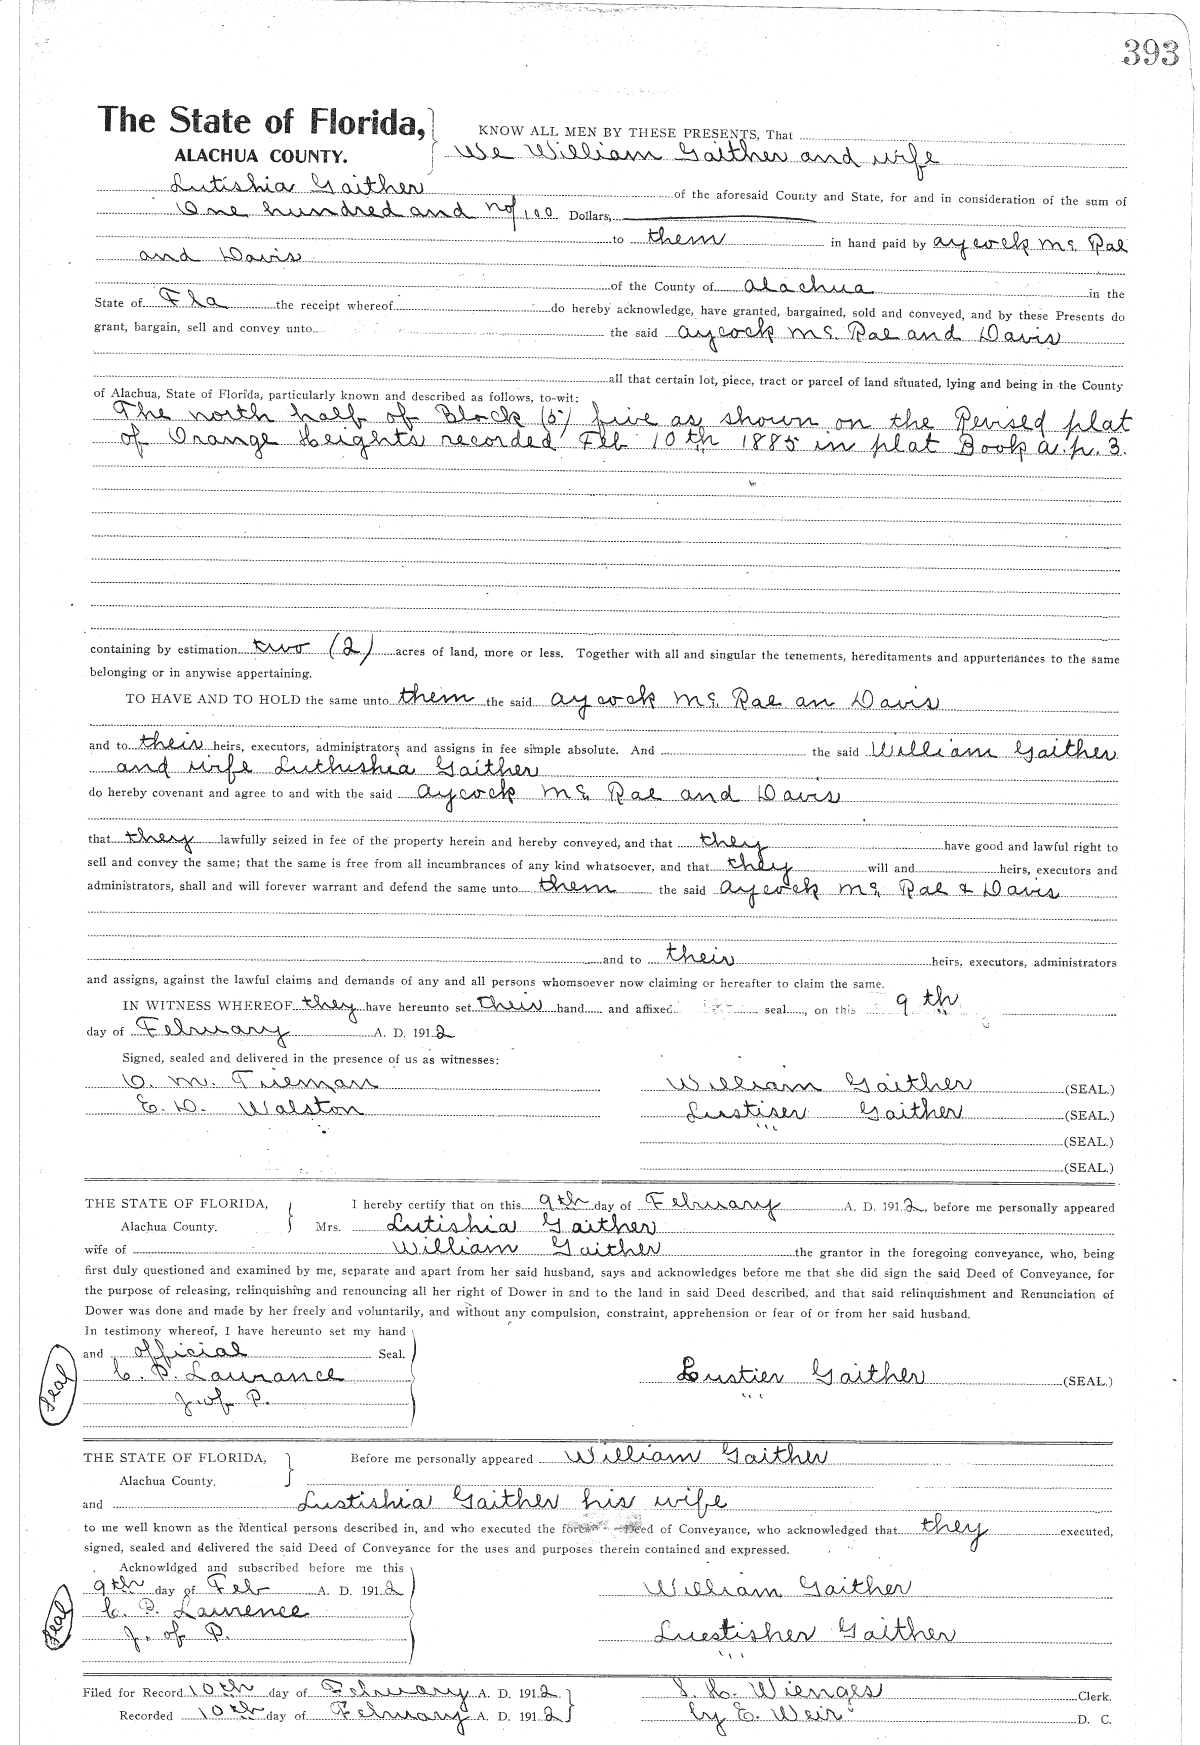 393
The State of Florida,
ALACHUA COUNTY.
KNOW ALL MEN BY THESE PRESENTS, That
We William Gaither and wife
Lutishia Gaither of the aforesaid County and State, for and in consideration of the sum of
One hundred and no/100 Dollars,
to them in hand paid by Aycock Mc. Rae
and Davis
of the County of Alachua in the
State of Fla the receipt whereof do hereby acknowledge, have granted, bargained, sold and conveyed, and by these Presents do
grant, bargain, sell and convey unto the said Aycock Mc. Rae and Davis
all that certain lot, piece, tract or parcel of land situated, lying and being in the County
of Alachua, State of Florida, particularly known and described as follows, to-wit:
The north half of Block (5) five as shown on the Revised plat
of Orange Heights recorded Feb 10th 1885 in plat Book A. p. 3.
containing by estimation two (2) acres of land, more or less. Together with all and singular the tenements, hereditaments and appurtenances to the same
belonging or in anywise appertaining.
TO HAVE AND TO HOLD the same unto them the said Aycock Mc. Rae an Davis
and to their heirs, executors, administrators and assigns in fee simple absolute. And the said William Gaither
and wife Luthishia Gaither
do hereby covenant and agree to and with the said Aycock Mc Rae and Davis
that they lawfully seized in fee of the property herein and hereby conveyed, and that they have good and lawful right to
sell and convey the same; that the same is free from all incumbrances of any kind whatsoever, and that they will and heirs, executors and
administrators, shall and will forever warrant and defend the same unto them the said Aycock Mc, Rae & Davis
and to their heirs, executors, administrators
and assigns, against the lawful claims and demands of any and all persons whomsoever now claiming or hereafter to claim the same.
IN WITNESS WHEREOF they have hereunto set their hand and affixed seal, on this 9th
day of February A. D. 1912
Signed, sealed and delivered in the presence of us as witnesses:
O. M. Tieman William Gaither (SEAL.)
E. D. Walston Lustiser Gaither (SEAL.)
(SEAL.)
(SEAL.)
THE STATE OF FLORIDA, I hereby certify that on this 9th day of February A. D. 1912, before me personally appeared
Alachua County. Mrs. Lutishia Gaither
wife of William Gaither the grantor in the foregoing conveyance, who, being
first duly questioned and examined by me, separate and apart from her said husband, says and acknowledges before me that she did sign the said Deed of Conveyance, for
the purpose of releasing, relinquishing and renouncing all her right of Dower in and to the land in said Deed described, and that said relinquishment and Renunciation of
Dower was done and made by her freely and voluntarily, and without any compulsion, constraint, apprehension or fear of or from her said husband.
In testimony whereof, I have hereunto set my hand
and official Seal.
Seal C. P. Laurance Lustier Gaither (SEAL.)
J. of P.
THE STATE OF FLORIDA, Before me personally appeared William Gaither
Alachua County.
and Lustishia Gaither his wife
to me well known as the identical persons described in, and who executed the Deed of Conveyance, who acknowledged that they executed,
signed, sealed and delivered the said Deed of Conveyance for the uses and purposes therein contained and expressed.
Acknowldged and subscribed before me this
9th day of Feb A. D. 1912 William Gaither
Seal C. P. Laurence
J. of P. Luestisher Gaither
Filed for Record 10th day of February A. D. 1912 S. H. Wienges Clerk.
Recorded 10th day of February A. D. 1912 by E. Weir D. C.